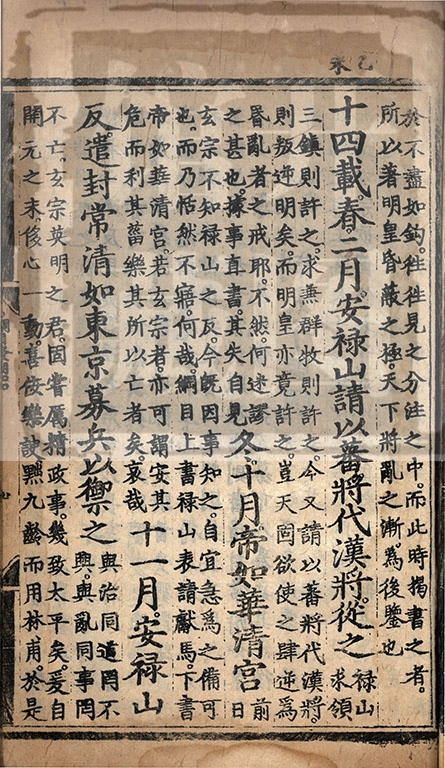 乙未
於不盡如鈎往往見之分注之中而此時揭書之者
所以著明皇昏蔽之極天下將亂之漸為後鑒也
十四載春二月安祿山請以蕃將代漢將從之
祿山
求領
三鎮則許之求兼群牧則許之今又請以蕃將代漢將
則叛逆明矣而明皇亦竟許之豈天固欲使之肆逆為
昬亂者之戒耶不然何迷謬
之甚也據事直書其失自見
冬十月帝如華清宮
前
日
玄宗不知祿山之反今旣因事知之自宜急為之備可
也而乃恬然不寤何哉綱目上書祿山表請獻馬下書
帝如華清宮若玄宗者亦可謂安其
危而利其菑樂其所以亡者矣哀哉
十一月安祿山
反遣封常清如東京募兵以禦之
與治同道罔不
興與亂同事罔
不亡玄宗英明之君因嘗厲精政事幾致太平矣爰自
開元之末侈心動喜佞樂諛黜九齡而用林甫於是